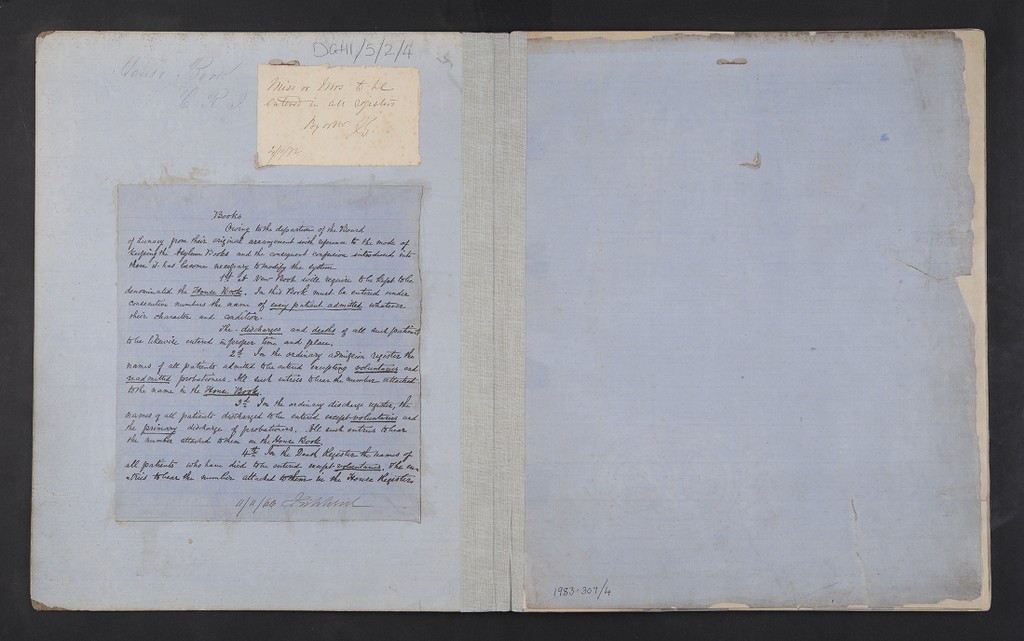 DGH1/5/2/4
House Book
Miss or Mrs to be
entered in all registers
By order
Books
Owing to the departure of the Board
of Lunacy from their original arrangement with reference to the mode of
keeping the Asylum Books and the consequent confusion introduced into
them it has become necessary to modify the system
1st A New Book will require to be kept to be
denominated the House Book. In this Book must be entered under
consecutive numbers the name of every patient admitted whatever
their character and condition.
The discharges and deaths of all such patients
to be likewise entered in proper time and place.
2d In the ordinary admission register the
names of all patients admitted to be entered excepting voluntaries and
readmitted probationers. All such entries to bear the number attached
to the name in the House Book.
3d In the ordinary discharge register, the
names of all patients discharged to be entered except voluntaries and
the primary discharge of probationers. All such entries to bear
the number attached to them in the House Book.
4th In the Death Register the names of
all patients who have died to be entered except voluntaries. The en-
tries to bear the number attached to them in the House Register
11/11/64
1983.307/4